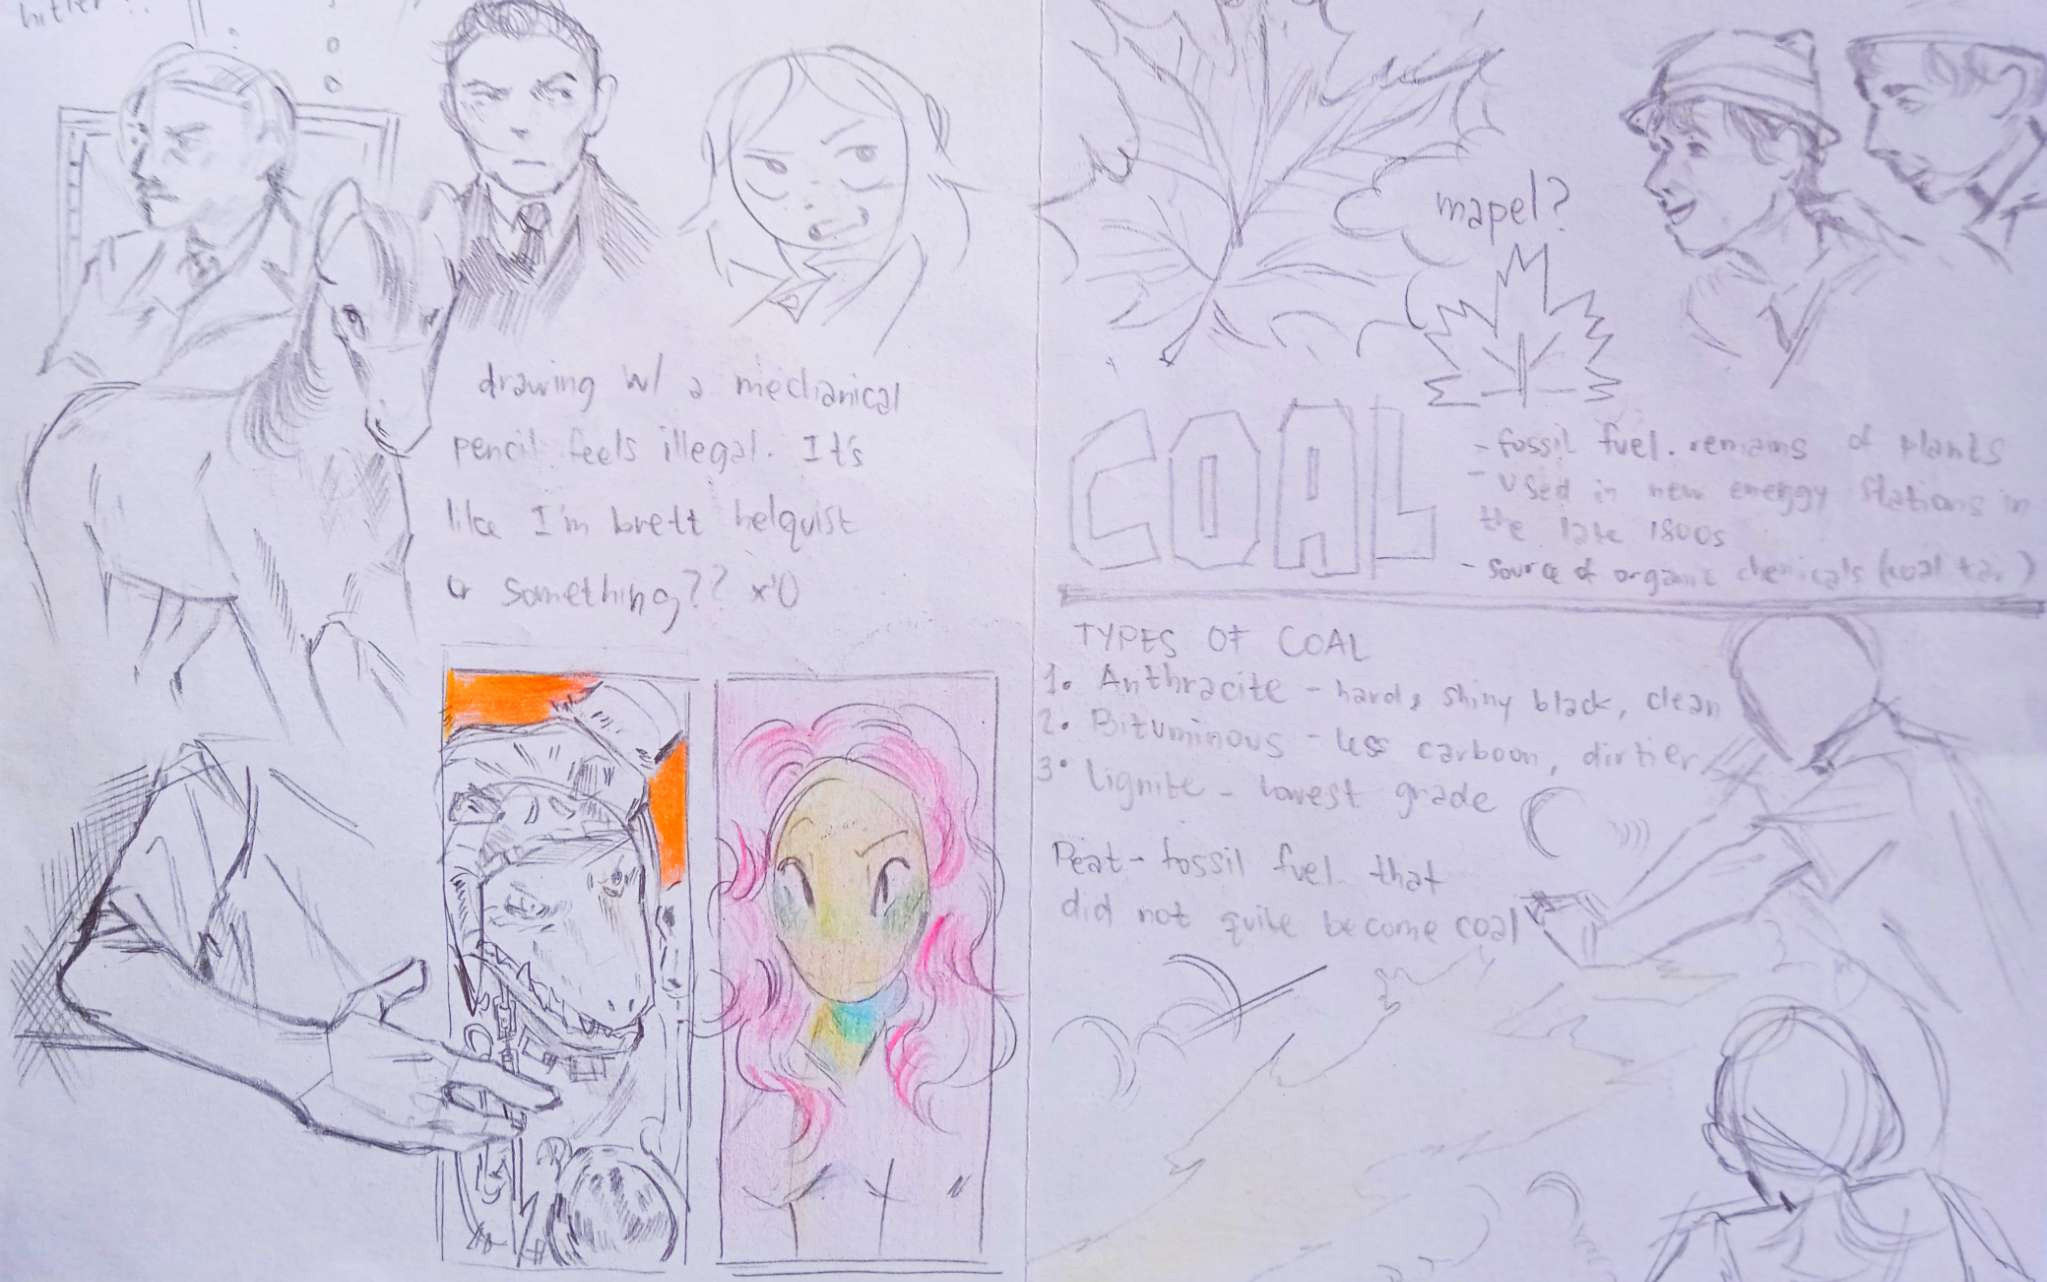 hitler??
drawing w/ a mechanical
pencil feels illegal. It's
like I'm brett helquist
or something?? x'0
mapel?
COAL
- fossil fuel. remains of plants
- used in new energy stations in
the late 1800s
- source of organic chemicals (coal tar)
TYPES OF COAL
1. Anthracite - hard, shiny black, clean
2. Bituminous - less carboon, dirtier
3. Lignite - lowest grade
Peat - fossil fuel that
did not quite become coal